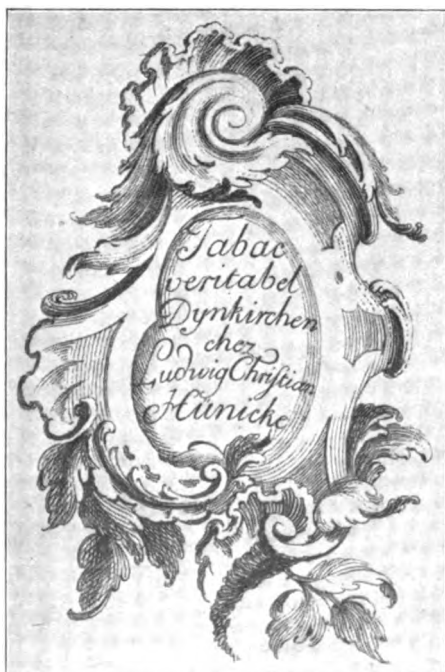 Tabac
veritabel
Dynkirchen
chez
Ludwig Christian
Hünicke